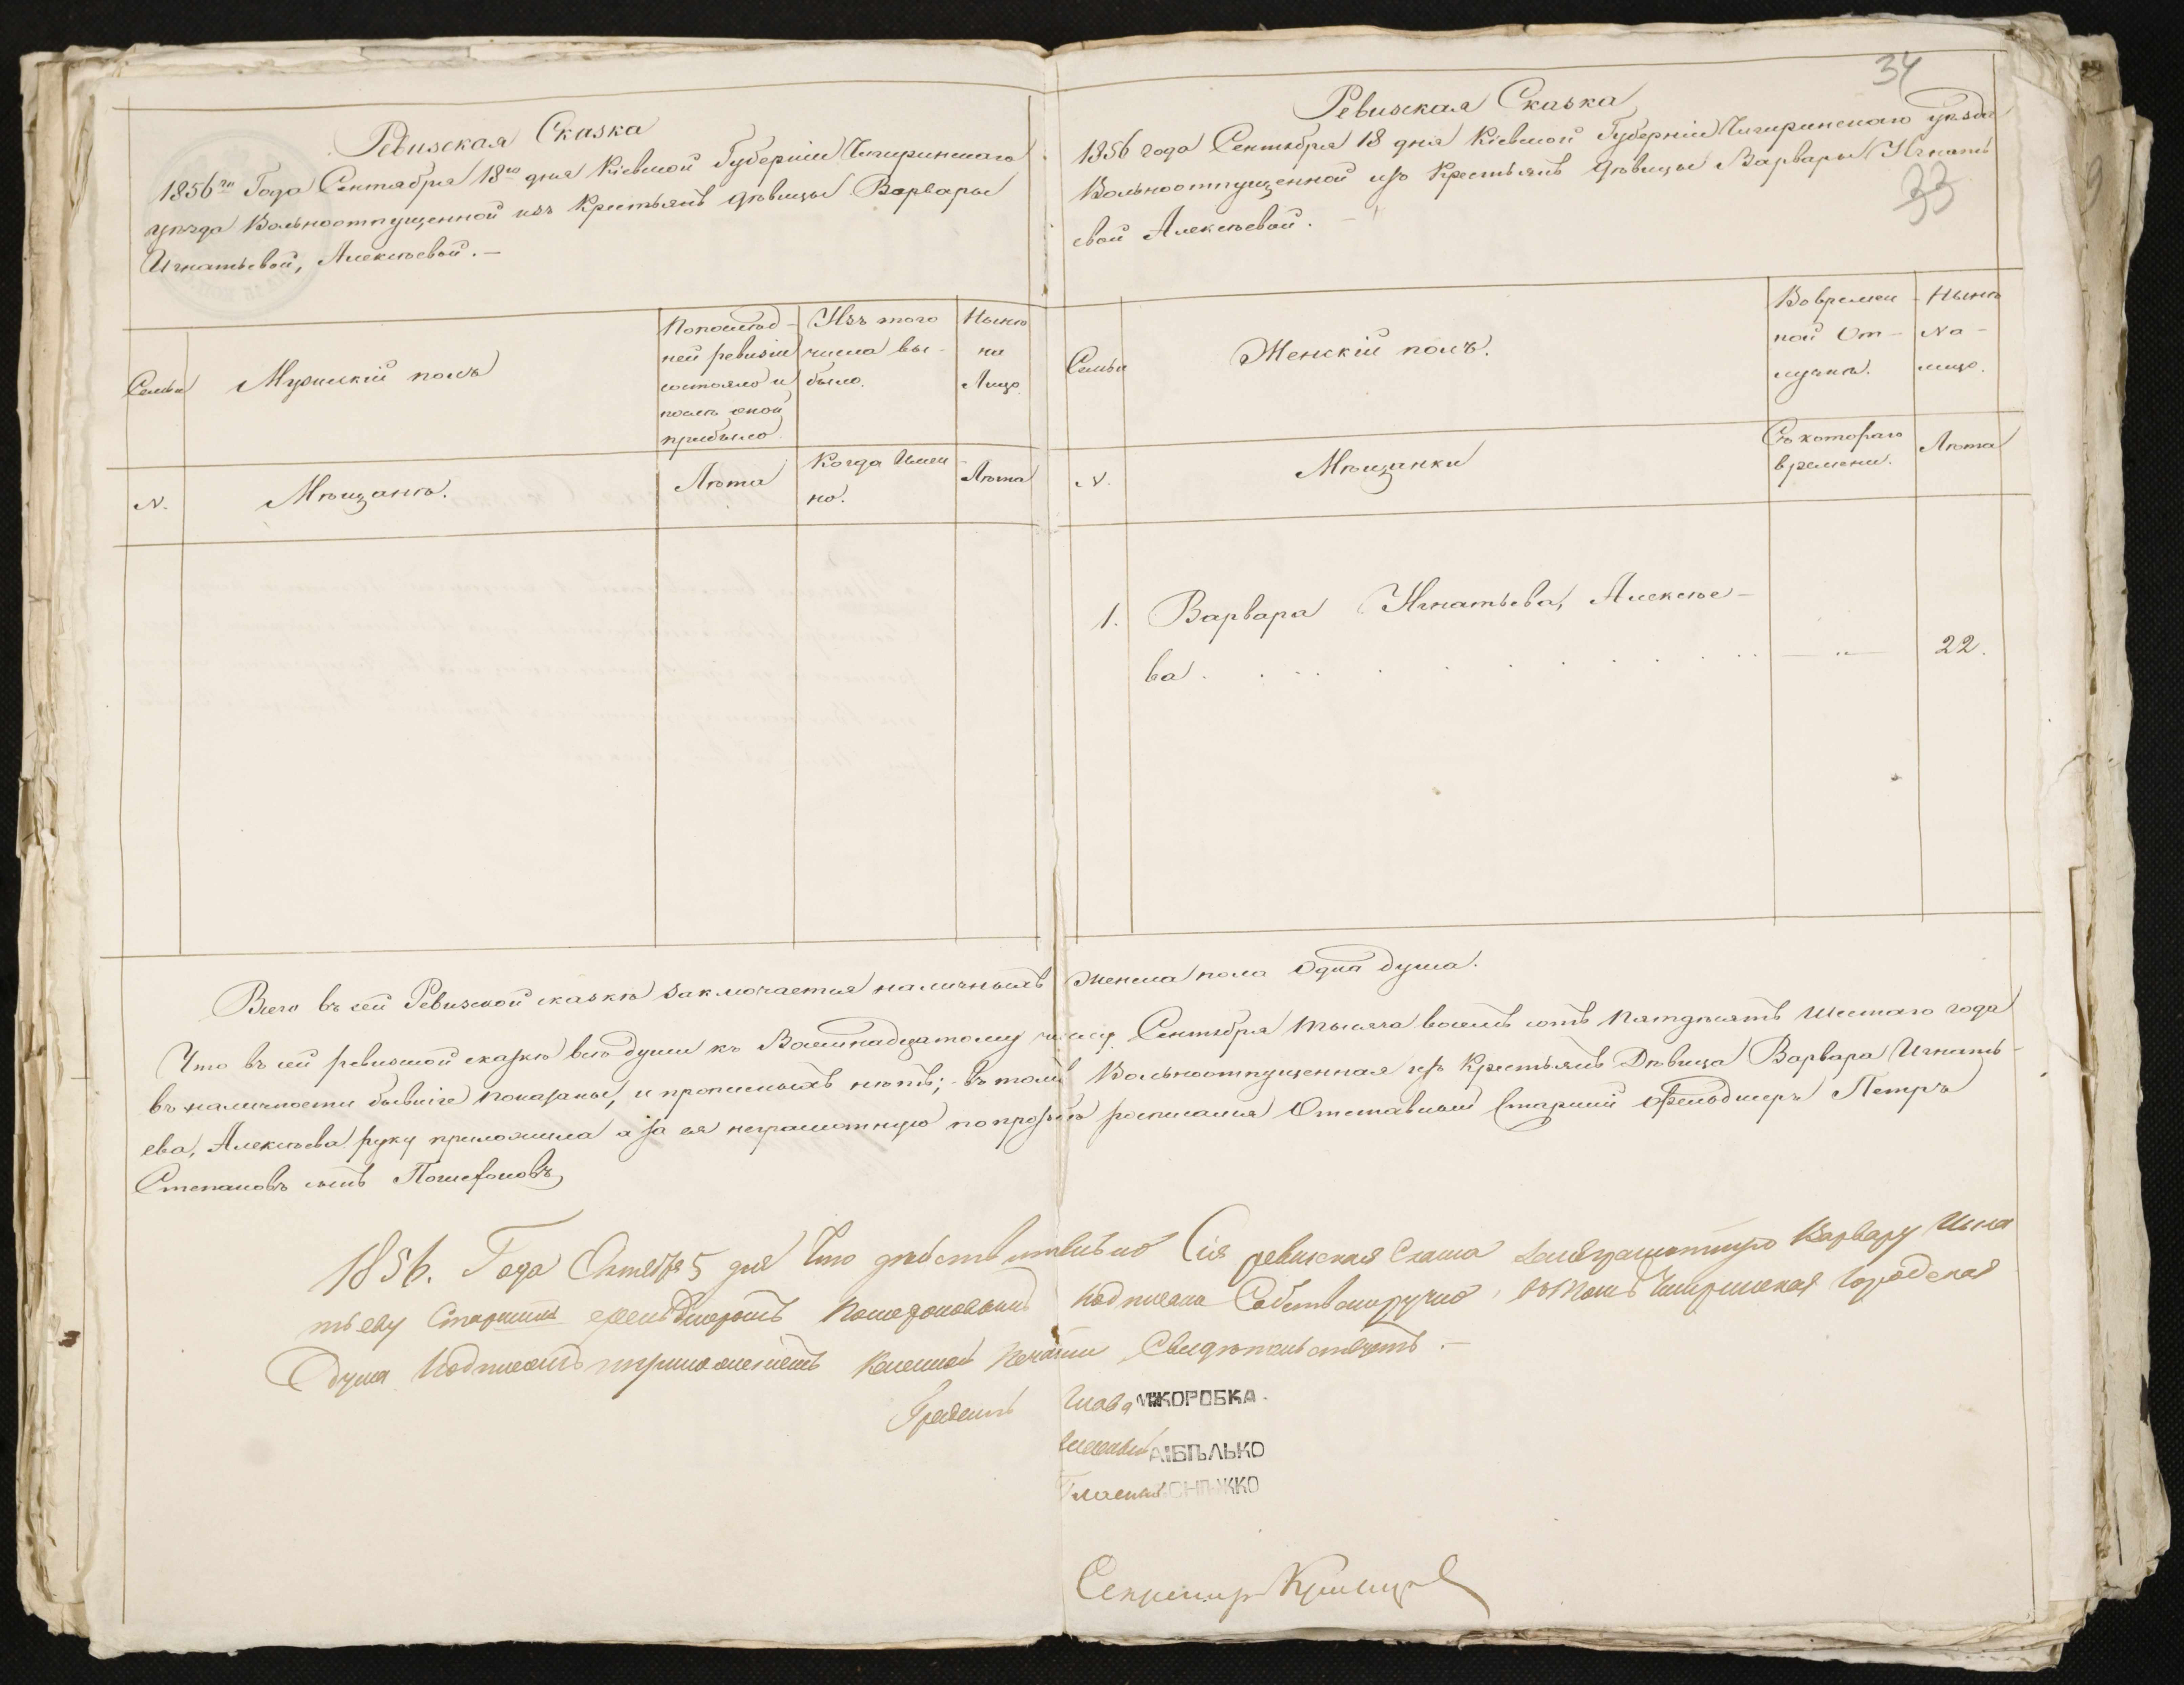 Ревизская Сказка
1856го Года Сентября 18го дня Кіевской Губерніи Чигиринскаго
уѣзда Вольноотпущенной изъ Крестьянъ дѣвицы Варвары
Игнатьевой, Алексѣевой. —
Семьи
Мужескій полъ
По послѣд-
ней ревизіи
состояло и
послѣ оной
прибыло
Изъ того
числа вы-
было.
Нынѣ
на
Лицо.
N.
Мѣщанъ.
Лѣта
Когда Имен-
но.
Лѣта
34
Ревизская Сказка
1856 года Сентября 18 дня Кіевской Губерніи Чигиринскаго уѣзда
Вольноотпущенной изъ Крестьянъ дѣвицы Варвары Игнать
евой Алексѣевой. —
33
Семьи
Женскій полъ.
Во времен-
ной От-
лучкѣ.
Нынѣ
На-
лицо.
N.
Мѣщанки
Съ котораго
времени.
Лѣта
1. Варвара Игнатьева, Алексѣе-
ва . . . . . . . . . . — „ — 22.
Всего въ сей Ревизской сказкѣ заключается наличныхъ Женска пола Одна душа.
Что въ сей ревизской сказкѣ всѣ души къ Восемнадцатому числу Сентября тысяча восемь сотъ пятдесятъ Шестаго года
въ наличности бывшіе показаны, и прописныхъ нѣтъ; въ томъ Вольноотпущенная изъ Крестьянъ Дѣвица Варвара Игнать-
ева, Алексѣева руку приложила а за ея неграмотную по прозбѣ росписался Отставный Старшій Фельдшеръ Петръ
Степановъ сынъ
1856. Года Октября 5 дня Что дѣйствительно Сія ревизская Сказка за неграмотную Варвару Игна
тьеву Старшимъ Фельдшеромъ подписана Собственоручно, въ томъ Чигиринская Городская
Дума Подписомъ съ приложеніемъ Казенной Печати Свидѣтельствуетъ. —
Градскій Глава КОРОБКА.
Гласный БѢЛЬКО
Гласный СНѢЖКО
Секретарь